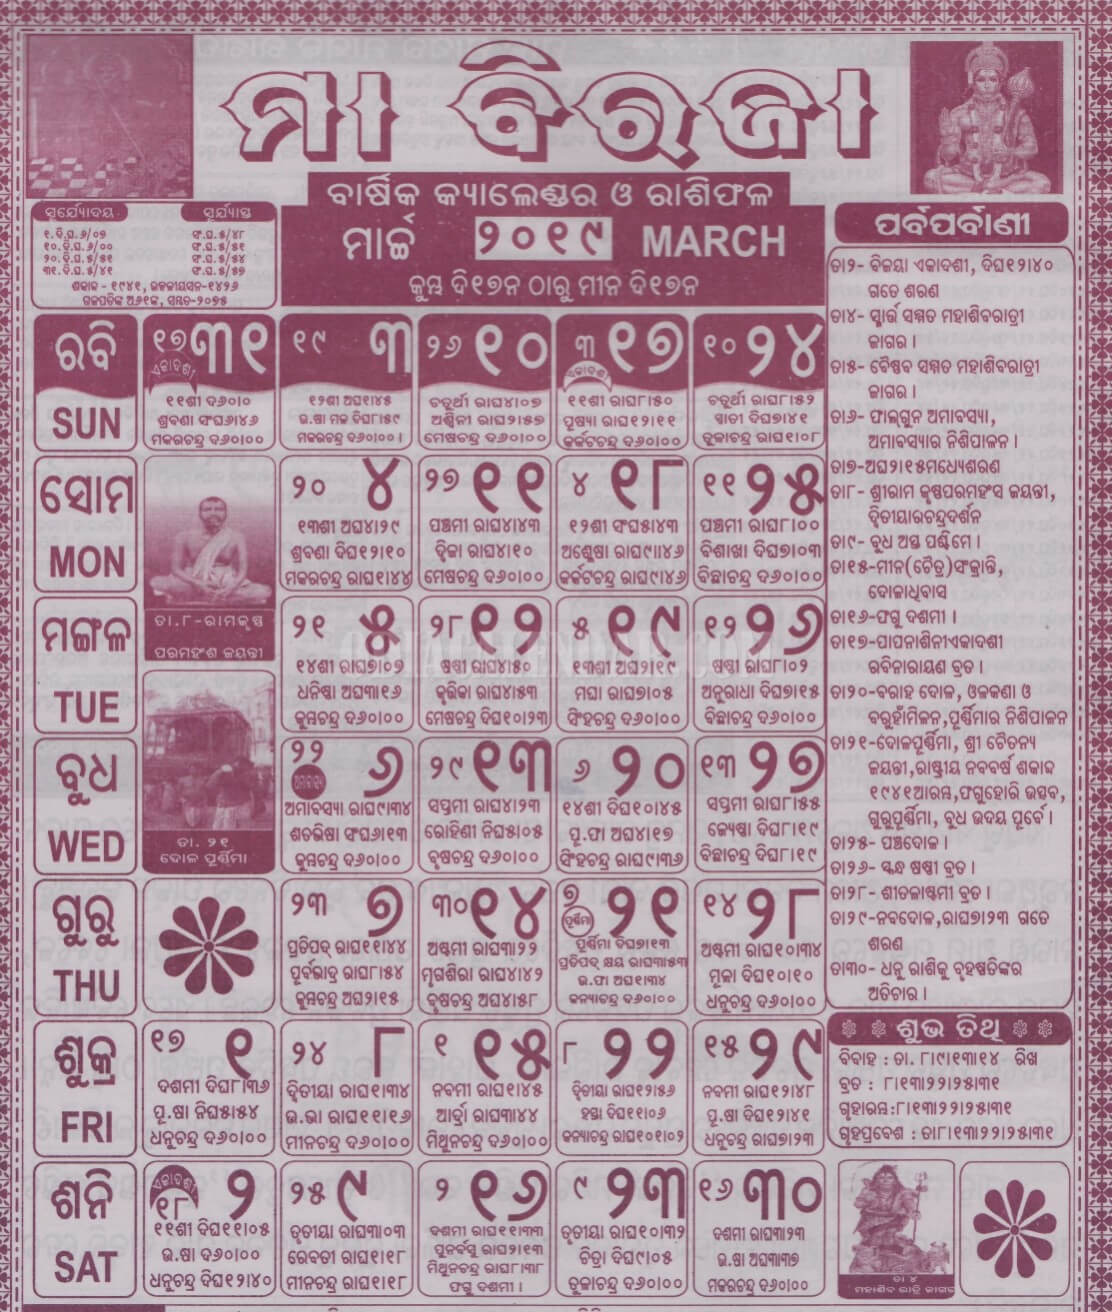 ମା ବିରଜା
ବାର୍ଷିକ କ୍ୟାଲେଣ୍ଡର ଓ ରାଶିଫଳ
ମାର୍ଚ୍ଚ ୨୦୧୯ MARCH
କୁମ୍ଭ ଦି୧୭ନ ଠାରୁ ମୀନ ଦି୧୭ନ
ସୂର୍ଯ୍ୟୋଦୟ ସୂର୍ଯ୍ୟାସ୍ତ
୧.ଦି.ଘ.୬/୦୭ ସଂ.ଘ.୫/୪୮
୧୦.ଦି.ଘ.୬/୦୦ ସଂ.ଘ.୫/୫୧
୨୦.ଦି.ଘ.୫/୫୧ ସଂ.ଘ.୫/୫୪
୩୧.ଦି.ଘ.୫/୪୧ ସଂ.ଘ.୫/୫୨
ଶକାବ୍ଦ - ୧୯୪୧, ଉତ୍କଳୀୟସନ-୧୪୨୬
ଗଜପତିଙ୍କ ଅ୬୧ଙ୍କ, ସମ୍ବତ-୨୦୭୫
ରବି
SUN
୧୭ ୩୧
ଏକାଦଶୀ
୧୧ଶୀ ଦ୬୦।୦
ଶ୍ରବଣା ସଂଘ୬।୪୬
ମକରଚନ୍ଦ୍ର ଦ୬୦।୦୦
୧୯ ୩
୧୨ଶୀ ଅଘ୧।୪୫
ଉ.ଷା ମଳ ଦିଘ୮।୫୯
ମକରଚନ୍ଦ୍ର ଦ୬୦।୦୦।
୨୬ ୧୦
ଚତୁର୍ଥୀ ରାଘ୪।୦୭
ଅଶ୍ୱିନୀ ରାଘ୨।୫୭
ମେଷଚନ୍ଦ୍ର ଦ୬୦।୦୦
୩ ୧୭
ଏକାଦଶୀ
୧୧ଶୀ ରାଘ୮।୫୦
ପୁଷ୍ୟା ରାଘ୧୨।୧୧
କର୍କଟଚନ୍ଦ୍ର ଦ୬୦।୦୦
୧୦ ୨୪
ଚତୁର୍ଥୀ ରାଘ୮।୫୨
ସ୍ୱାତୀ ଦିଘ୭।୪୧
ତୁଳାଚନ୍ଦ୍ର ରାଘ୧।୦୮
ସୋମ
MON
ତା.୮-ରାମକୃଷ୍ଣ
ପରମହଂଶ ଜୟନ୍ତୀ
୨୦ ୪
୧୩ଶୀ ଅଘ୪।୨୯
ଶ୍ରବଣା ଦିଘ୧୨।୧୦
ମକରଚନ୍ଦ୍ର ରାଘ୧।୪୪
୨୭ ୧୧
ପଞ୍ଚମୀ ରାଘ୪।୪୩
ଦ୍ୱିଜା ରାଘ୪।୧୦
ମେଷଚନ୍ଦ୍ର ଦ୬୦।୦୦
୪ ୧୮
୧୨ଶୀ ସଂଘ୫।୪୩
ଅଶ୍ଳେଷା ରାଘ୯।୪୬
କର୍କଟଚନ୍ଦ୍ର ରାଘ୯।୪୬
୧୧ ୨୫
ପଞ୍ଚମୀ ରାଘ୮।୦୦
ବିଶାଖା ଦିଘ୭।୦୩
ବିଛାଚନ୍ଦ୍ର ଦ୬୦।୦୦
ମଙ୍ଗଳ
TUE
୨୧ ୫
୧୪ଶୀ ରାଘ୭।୦୭
ଧନିଷ୍ଠା ଅଘ୩।୧୬
କୁମ୍ଭଚନ୍ଦ୍ର ଦ୬୦।୦୦
୨୮ ୧୨
ଷଷ୍ଠୀ ରାଘ୪।୫୦
କୃତ୍ତିକା ରାଘ୪।୫୩
ମେଷଚନ୍ଦ୍ର ଦିଘ୧୦।୨୩
୫ ୧୯
୧୩ଶୀ ଅଘ୨।୧୯
ମଘା ରାଘ୭।୦୫
ସିଂହଚନ୍ଦ୍ର ଦ୬୦।୦୦
୧୨ ୨୬
ଷଷ୍ଠୀ ରାଘ୮।୦୨
ଅନୁରାଧା ଦିଘ୭।୧୫
ବିଛାଚନ୍ଦ୍ର ଦ୬୦।୦୦
ବୁଧ
WED
ତା. ୨୧
ଦୋଳ ପୂର୍ଣ୍ଣିମା
୨୨ ୬
ଅମାବାସ୍ୟା ରାଘ୯।୩୪
ଶତଭିଷା ସଂଘ୬।୧୩
କୁମ୍ଭଚନ୍ଦ୍ର ଦ୬୦।୦୦
୨୯ ୧୩
ସପ୍ତମୀ ରାଘ୪।୨୩
ରୋହିଣୀ ନିଘ୫।୦୫
ବୃଷଚନ୍ଦ୍ର ଦ୬୦।୦୦
୬ ୨୦
୧୪ଶୀ ଦିଘ୧୦।୪୫
ପୂ.ଫା ଅଘ୪।୧୭
ସିଂହଚନ୍ଦ୍ର ରାଘ୯।୩୬
୧୩ ୨୭
ସପ୍ତମୀ ରାଘ୮।୫୫
ଜ୍ୟେଷ୍ଠା ଦିଘ୮।୧୯
ବିଛାଚନ୍ଦ୍ର ଦିଘ୮।୧୯
ଗୁରୁ
THU
୨୩ ୭
ପ୍ରତିପଦ୍ ରାଘ୧୧।୪୪
ପୂର୍ବଭାଦ୍ର ରାଘ୮।୫୪
କୁମ୍ଭଚନ୍ଦ୍ର ଅଘ୨।୧୫
୩୦ ୧୪
ଅଷ୍ଟମୀ ରାଘ୩।୨୨
ମୃଗଶିରା ରାଘ୪।୪୨
ବୃଷଚନ୍ଦ୍ର ଅଘ୪।୫୮
୭ ୨୧
ପୂର୍ଣ୍ଣିମା
ପୂର୍ଣ୍ଣିମା ଦିଘ୭।୧୩
ପ୍ରତିପଦ୍ କ୍ଷୟ ରାଘ୩।୫୩
ଉ.ଫା ଅଘ୧।୩୪
କନ୍ୟାଚନ୍ଦ୍ର ଦ୬୦।୦୦
୧୪ ୨୮
ଅଷ୍ଟମୀ ରାଘ୧୦।୩୪
ମୂଳା ଦିଘ୧୦।୧୦
ଧନୁଚନ୍ଦ୍ର ଦ୬୦।୦୦
ଶୁକ୍ର
FRI
୧୭ ୧
ଦଶମୀ ଦିଘ୮।୩୬
ପୂ.ଷା ନିଘ୫।୫୪
ଧନୁଚନ୍ଦ୍ର ଦ୬୦।୦୦
୨୪ ୮
ଦ୍ୱିତୀୟା ରାଘ୧।୩୪
ଉ.ଭା ରାଘ୧୧।୧୬
ମୀନଚନ୍ଦ୍ର ଦ୬୦।୦୦
୧ ୧୫
ନବମୀ ରାଘ୧।୪୫
ଆର୍ଦ୍ରା ରାଘ୩।୪୪
ମିଥୁନଚନ୍ଦ୍ର ଦ୬୦।୦୦
୮ ୨୨
ଦ୍ୱିତୀୟା ରାଘ୧୨।୫୬
ହସ୍ତା ଦିଘ୧୧।୦୬
କନ୍ୟାଚନ୍ଦ୍ର ରାଘ୧୦।୧।୦୨
୧୫ ୨୯
ନବମୀ ରାଘ୧୨।୪୮
ପୂ.ଷା ଦିଘ୧୨।୪୧
ଧନୁଚନ୍ଦ୍ର ରାଘ୭।୨୩
ଶନି
SAT
ଏକାଦଶୀ
୧୮ ୨
୧୧ଶୀ ଦିଘ୧୧।୦୫
ଉ.ଷା ଦ୬୦।୦୦
ଧନୁଚନ୍ଦ୍ର ଦିଘ୧୨।୪୦
୨୫ ୯
ତୃତୀୟା ରାଘ୩।୦୩
ରେବତୀ ରାଘ୧।୧୮
ମୀନଚନ୍ଦ୍ର ରାଘ୧।୧୮
୨ ୧୬
ଦଶମୀ ରାଘ୧୧।୩୩
ପୁନର୍ବସୁ ରାଘ୨।୧୩
ମିଥୁନଚନ୍ଦ୍ର ରାଘ୮।୩୮
ଫଗୁ ଦଶମୀ ।
୯ ୨୩
ତୃତୀୟା ରାଘ୧୦।୩୨
ଚିତ୍ରା ଦିଘ୯।୦୫
ତୁଳାଚନ୍ଦ୍ର ଦ୬୦।୦୦
୧୬ ୩୦
ଦଶମୀ ରାଘ୩।୨୩
ଉ.ଷା ଅଘ୩।୩୭
ମକରଚନ୍ଦ୍ର ଦ୬୦।୦୦
ପର୍ବପର୍ବାଣୀ
ତା୨- ବିଜୟା ଏକାଦଶୀ, ଦିଘ୧୨।୪୦
ଗତେ ଶରଣ
ତା୪- ସ୍ମାର୍ତ୍ତ ସମ୍ମତ ମହାଶିବରାତ୍ରୀ
ଜାଗର ।
ତା୫- ବୈଷ୍ଣବ ସମ୍ମତ ମହାଶିବରାତ୍ରୀ
ଜାଗର ।
ତା୬- ଫାଲ୍‌ଗୁନ ଅମାବାସ୍ୟା,
ଅମାବାସ୍ୟାର ନିଶିପାଳନ ।
ତା୭-ଅଘ୨।୧୫ମଧ୍ୟେଶରଣ
ତା୮- ଶ୍ରୀରାମ କୃଷ୍ଣପରମହଂସ ଜୟନ୍ତୀ,
ଦ୍ୱିତୀୟାରଚନ୍ଦ୍ରଦର୍ଶନ
ତା୯- ବୁଧ ଅସ୍ତ ପଶ୍ଚିମେ ।
ତା୧୫-ମୀନ(ଚୈତ୍ର)ସଂକ୍ରାନ୍ତି,
ଦୋଳାଧିବାସ
ତା୧୬-ଫଗୁ ଦଶମୀ ।
ତା୧୭-ପାପନାଶିନୀଏକାଦଶୀ
ରବିନାରାୟଣ ବ୍ରତ ।
ତା୨୦-ବରାହ ଦୋଳ, ଓକଳଣା ଓ
ବଢ଼ୁହାଁମିଳନ,ପୂର୍ଣ୍ଣିମାର ନିଶିପାଳନ
ତା୨୧-ଦୋଳପୂର୍ଣ୍ଣିମା, ଶ୍ରୀ ଚୈତନ୍ୟ
ଜୟନ୍ତୀ,ରାଷ୍ଟ୍ରୀୟ ନବବର୍ଷ ଶକାବ୍ଦ
୧୯୪୧ଆରମ୍ଭ,ଫଗୁହୋରି ଉତ୍ସବ,
ଗୁରୁପୂର୍ଣ୍ଣିମା, ବୁଧ ଉଦୟ ପୂର୍ବେ ।
ତା୨୫- ପଞ୍ଚଦୋଳ ।
ତା୨୬- ସ୍କନ୍ଧ ଷଷ୍ଠୀ ବ୍ରତ ।
ତା୨୮- ଶୀତଳାଷ୍ଟମୀ ବ୍ରତ ।
ତା୨୯-ନବଦୋଳ,ରାଘ୭।୨୩ ଗତେ
ଶରଣ
ତା୩୦- ଧନୁ ରାଶିକୁ ବୃହସ୍ପତିଙ୍କର
ଅତିଚାର ।
ଶୁଭ ତିଥି
ବିବାହ : ତା. ୮।୯।୧୩।୧୪ ରିଖ
ବ୍ରତ : ୮।୧୩।୨୨।୨୫।୩୧
ଗୃହାରମ୍ଭ:୮।୧୩।୨୨।୨୫।୩୧
ଗୃହପ୍ରବେଶ : ତା୮।୧୩।୨୨।୨୫।୩୧
ତା ୪
ମହାଶିବ ରାତ୍ରି ଜାଗର